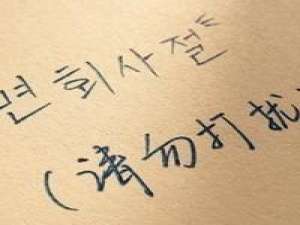 면회사절"
(请勿打扰)